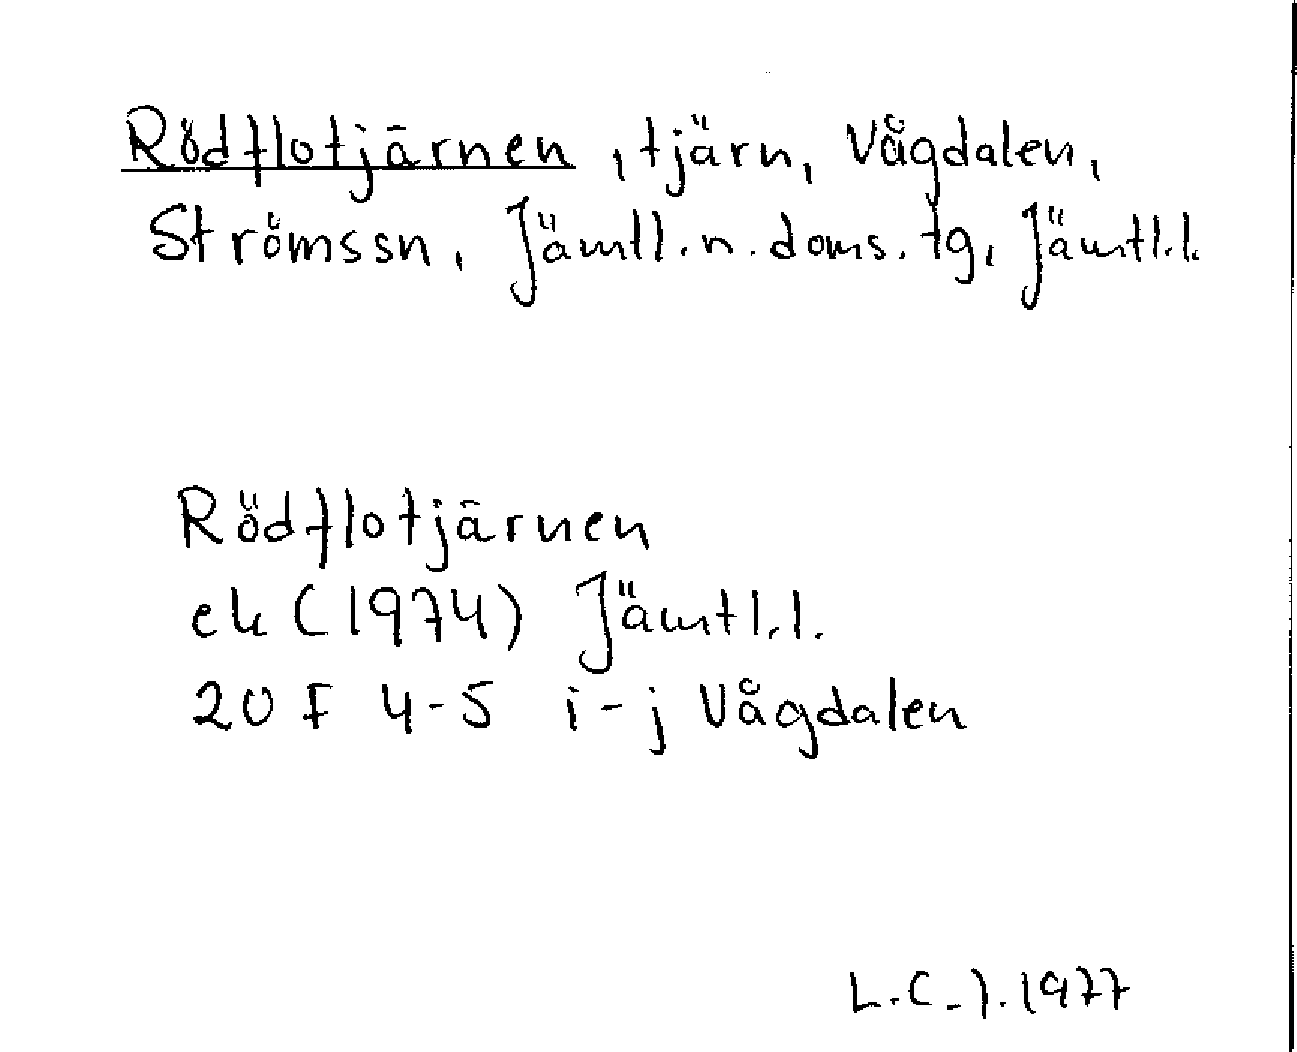 Rödflotjärnen, tjärn, Vågdalen,
Strömssn, Jämtl. n. doms. tg, Jämtl.l.
Rödflotjärnen
ek (1974) Jämtl.l.
20 F 4-5 i-j Vågdalen
L.C-J. 1977